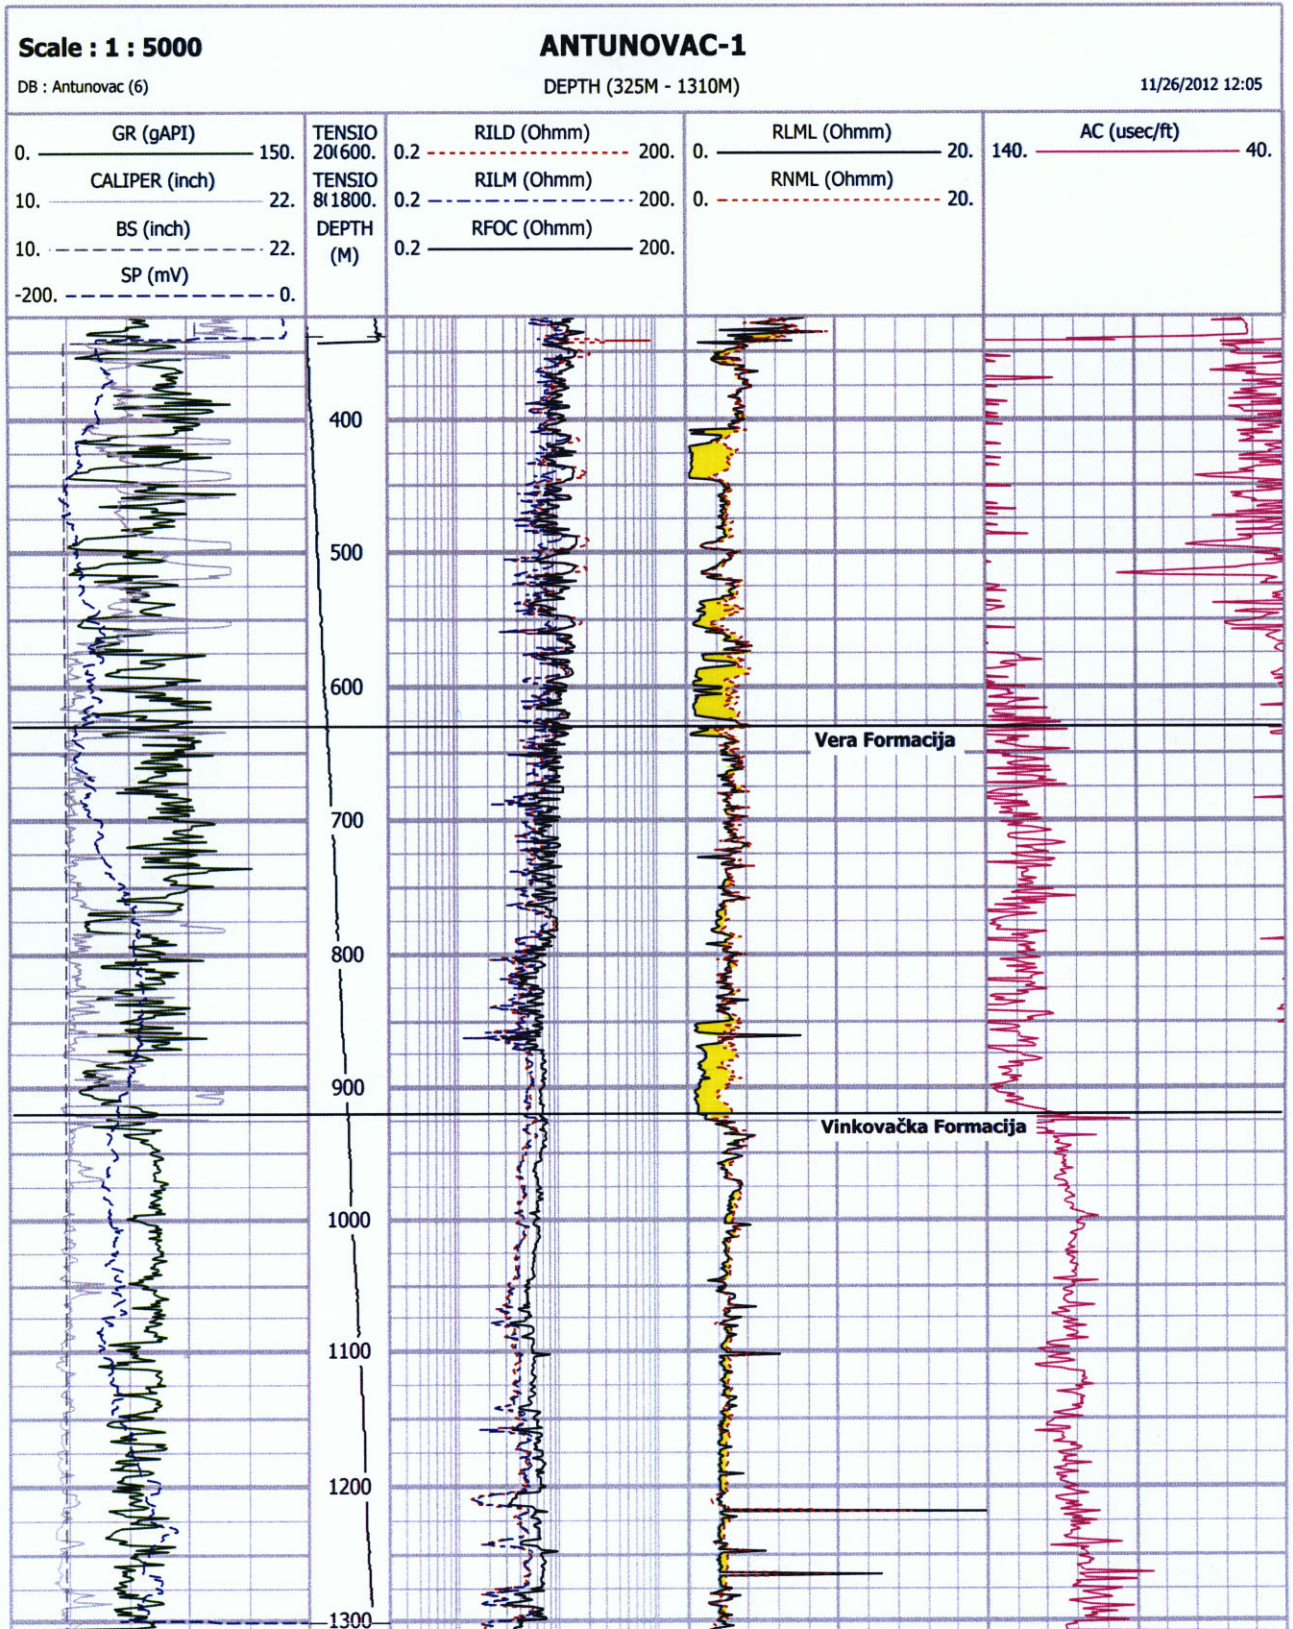 Scale : 1 : 5000
ANTUNOVAC-1
DB : Antunovac (6)
DEPTH (325M - 1310M)
11/26/2012 12:05
GR (gAPI)
0. 150.
CALIPER (inch)
10. 22.
BS (inch)
10. 22.
SP (mV)
-200. 0.
TENSIO
20(600.
TENSIO
8(1800.
DEPTH
(M)
RILD (Ohmm)
0.2 200.
RILM (Ohmm)
0.2 200.
RFOC (Ohmm)
0.2 200.
RLML (Ohmm)
0. 20.
RNML (Ohmm)
0. 20.
AC (usec/ft)
140. 40.
400
500
600
Vera Formacija
700
800
900
Vinkovačka Formacija
1000
1100
1200
1300